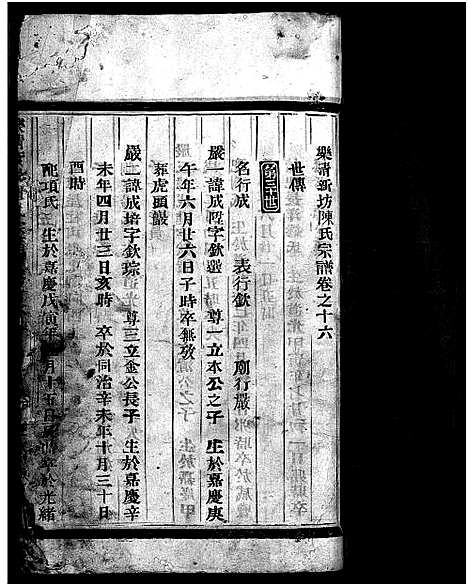 樂清新坊陳氏宗譜卷之十六
世傳
第三十世
名行成 表行欽 廟行嚴
嚴一諱成陞字欽選 尊一立本公之子 生於嘉慶庚
午年六月廿六日子時卒無攷
葬虎頭巖
嚴二諱成培字欽琮 尊三立金公長子 生於嘉慶辛
未年四月廿三日亥時 卒於同治辛未年十月三十日
酉時
配項氏 生於嘉慶戊寅年 月十五日 時卒於光緒